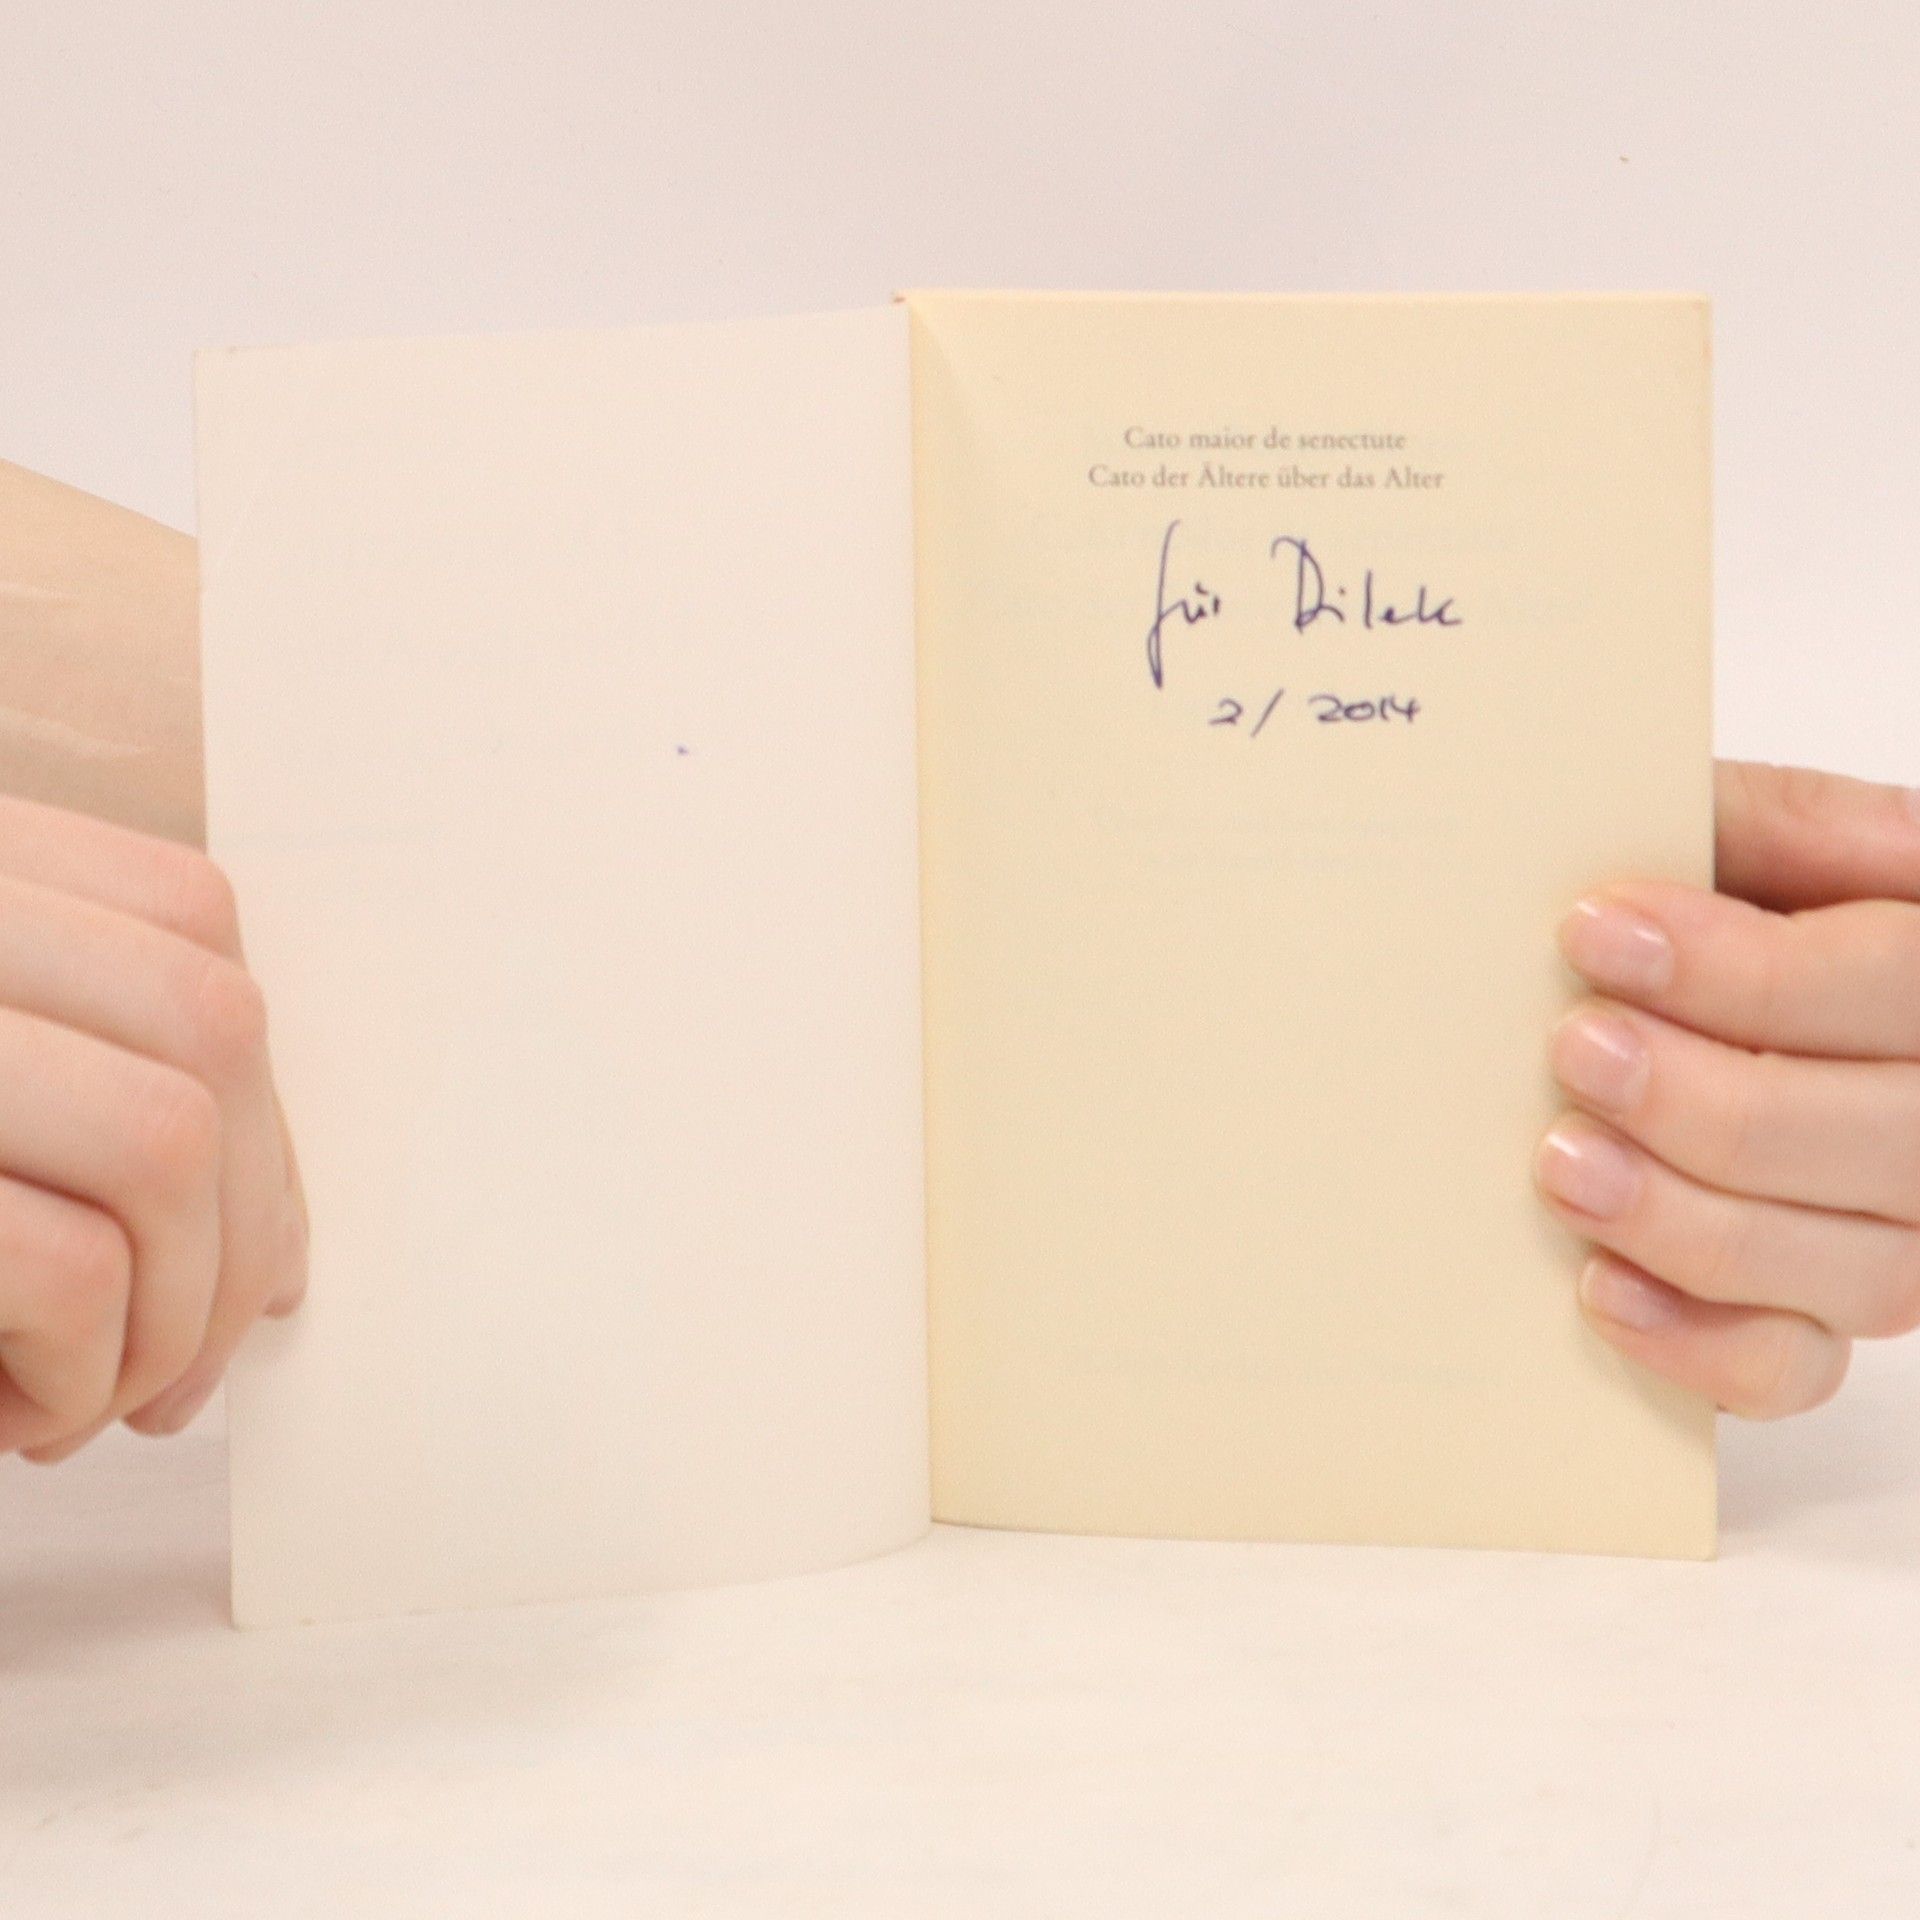 Cato maior de senectute
Cato der Ältere über das Alter
für Dilek
2/2014